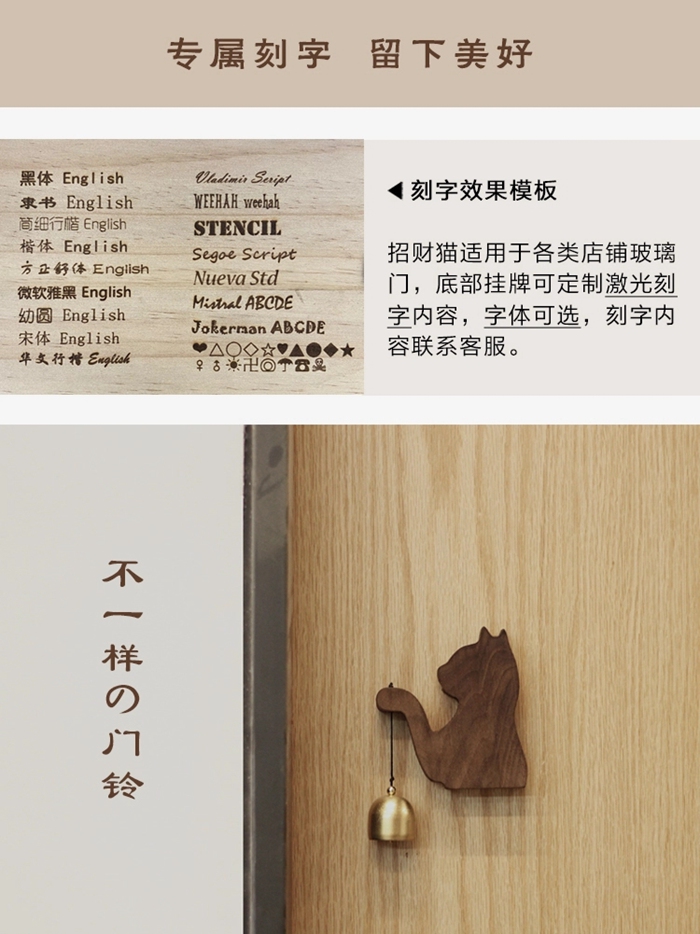 专属刻字 留下美好
黑体 English
隶书 English
简细行楷 English
楷体 English
方正舒体 English
微软雅黑 English
幼圆 English
宋体 English
华文行楷 English
Vladimir Script
WEEHAH weehah
STENCIL
Segoe Script
Nueva Std
Mistral ABCDE
Jokerman ABCDE
❤△○◇☆♥▲●◆★
♀♂☀卍◎☂☎☠
◀刻字效果模板
招财猫适用于各类店铺玻璃
门，底部挂牌可定制激光刻
字内容，字体可选，刻字内
容联系客服。
不一样の门铃